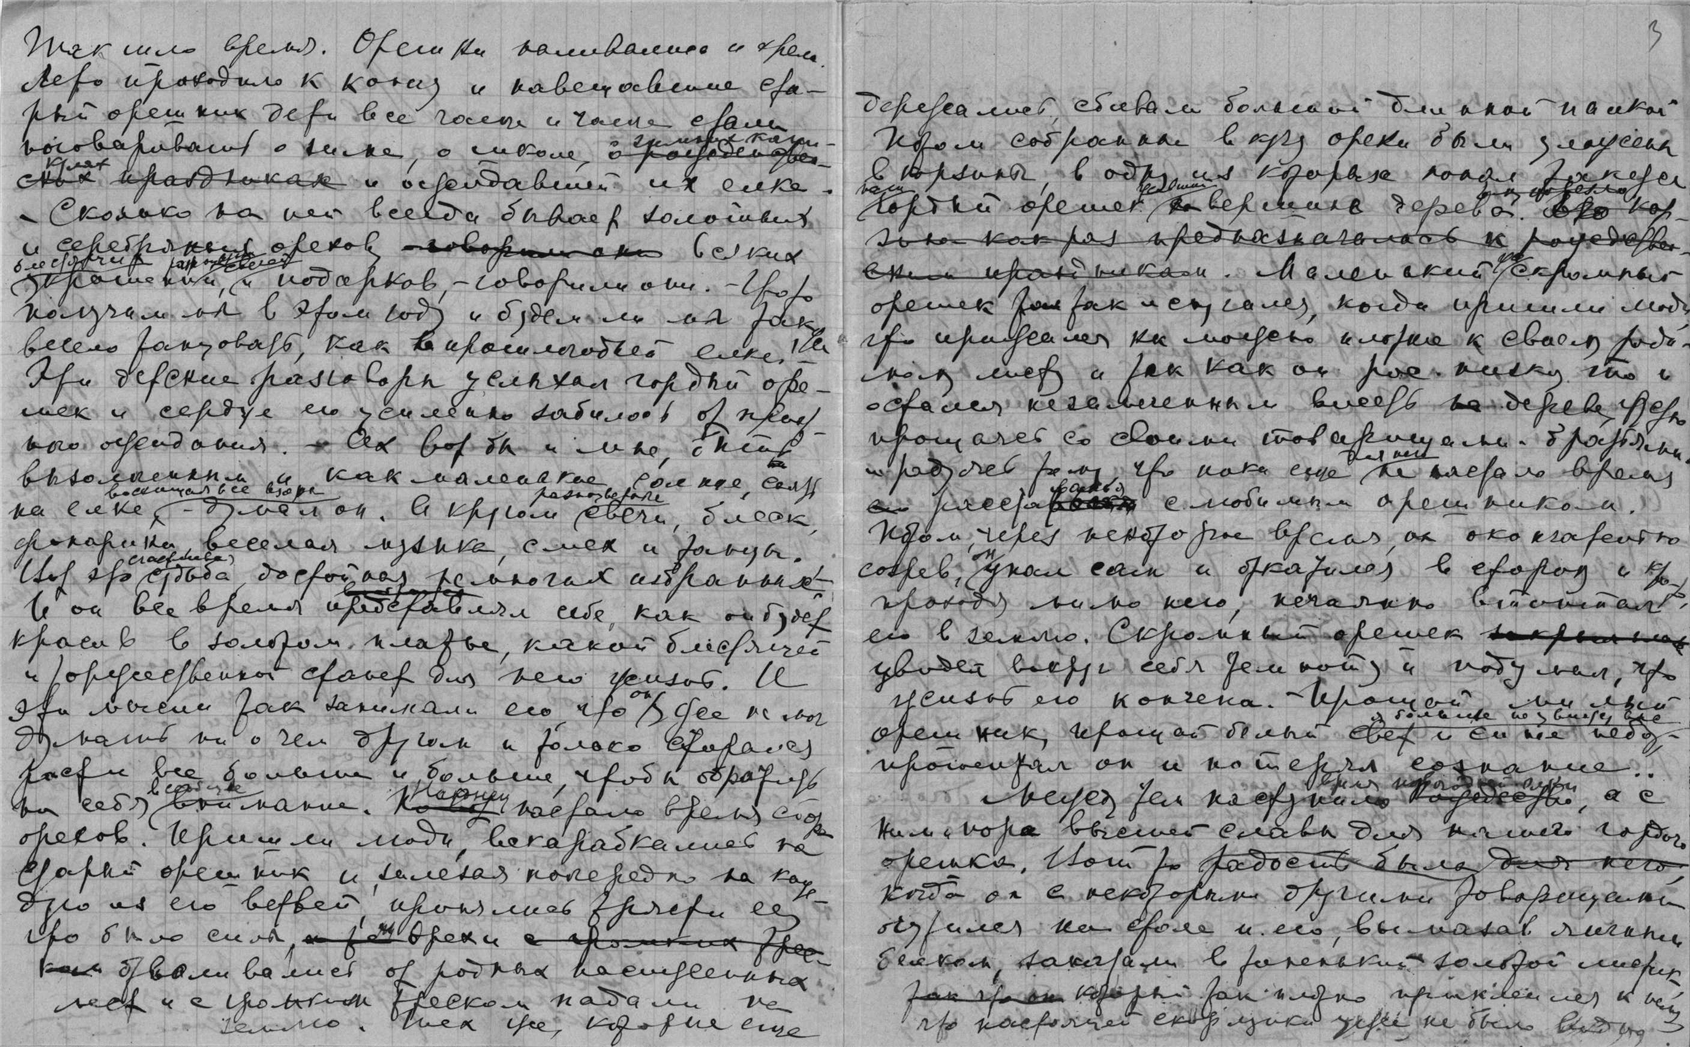 Так шло время. Орешки наливались и зрели.
Лето приходило к концу и навещавшие ста-
рый орешник дети все чаще и чаще стали
поговаривать о зиме, о школе, о рождествен- зимних кани-
кулах
ских праздниках и ожидавшей их елке.
- Сколько на ней всегда бывает золотых
и серебряных орехов, говорили они всяких
блестящих свечей
украшений, и подарков, - говорили они. - Что то
получим мы в этом году и будем ли мы так
весело танцовать, как в прошлогодней елке?
Эти детские разговоры услыхал гордый оре-
шек и сердце его усиленно забилось от
ного ожидания. - Ах вот бы и мне, быть
вызолоченным и как маленькое солнце, сиять
восхищая все взоры разноцветные
на елке, - думал он. А кругом свечи, блеск,
фонарики, веселая музыка, смех и танцы.
счастливая
Вот это судьба, достойная немногих избранных!
И он все время представлял себе, как он будет
красив в золотом платье, какой блестящей
и торжественной станет для него жизнь. И
эти мысли так занимали его, что он уже не мог
думать ни о чем другом и только старался
расти все больше и больше, чтобы обратить
всеобщее
на себя внимание. Наконец настало время сбора
орехов. Пришли люди, вскарабкались на
старый орешник и, залезая поочередно на каж-
дую из его ветвей, принялись трясти ее,
что было силы, Орехи с громким трес-
ком отваливались от родных насиженных
мест и с громким треском падали на
землю. Тех же, которые еще
3
держались, сбивали большой длинной палкой
Потом собранные в кучу орехи были уложены
в корзины, в одну из которых попал также
наш гордый орешек с вершины дерева. Его кор-
зина как раз предназначалась к рождествен-
ским праздникам. Маленький же скромный
орешек так испугался, когда пришли люди,
что прижался как можно плотнее к своему роди-
мому листу и так как он рос низко, то и
остался незамеченным висеть на дереве, грустно
прощаясь со своими товарищами-братьями
и радуясь тому, что пока еще для него не настало время
расставанья с любимым орешником.
Потом, через некоторое время, он окончательно
созрев, упал сам и откатился в сторону и кто-то,
проходя мимо него, нечаянно втоптал
его в землю. Скромный орешек
увидел вокруг себя темноту и подумал, что
жизнь его кончена. - Прощай милый
я больше не увижу вас
орешник, прощай белый свет и синее небо, -
прошептал он и потерял сознание..
Между тем наступило Рождество, а с
ним и пора высшей славы для нашего гордого
орешка. Вот то радость была для него,
когда он с некоторыми другими товарищами
очутился на столе и его, вымазав яичным
белком, закатали в тоненький золотой листик,
так что он который так плотно приклеился к нему,
что настоящей скорлупки уже не было видно